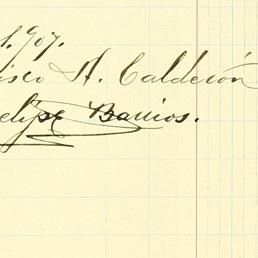 1.907.
isco A. Calderón
elipe Barrios.